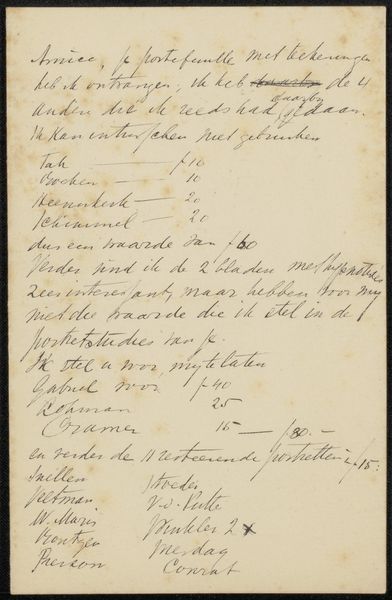 Amice, je portefeuille met tekeningen
heb ik ontvangen; ik heb de 4
daarby
andere die ik reeds had, gedaan.
Ik kan intusschen niet gebruiken
Tak — f 10
— 10
Heemskerk — 20
Schimmel — 20
dus een waarde van f 60
Verder vind ik de 2 bladen met hypnotisés
zeer interessant, maar hebben voor my
niet die waarde die ik stel in de
portretstudies van je.
Ik stel u voor my te laten
Gabriel voor f 40
Lohman 25
Cramer 15 — f 80.–
en verder de 11 resteerende portretten à f 15.
Snellen
Veltman v. d. Putte
W. Maris Winkler 2 x
Röntgen Mesdag
Pierson Conrat